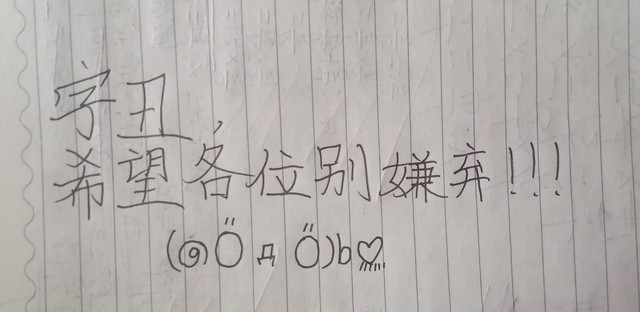 字丑,
希望各位别嫌弃!!!
(๑Ö д Ö)b♡